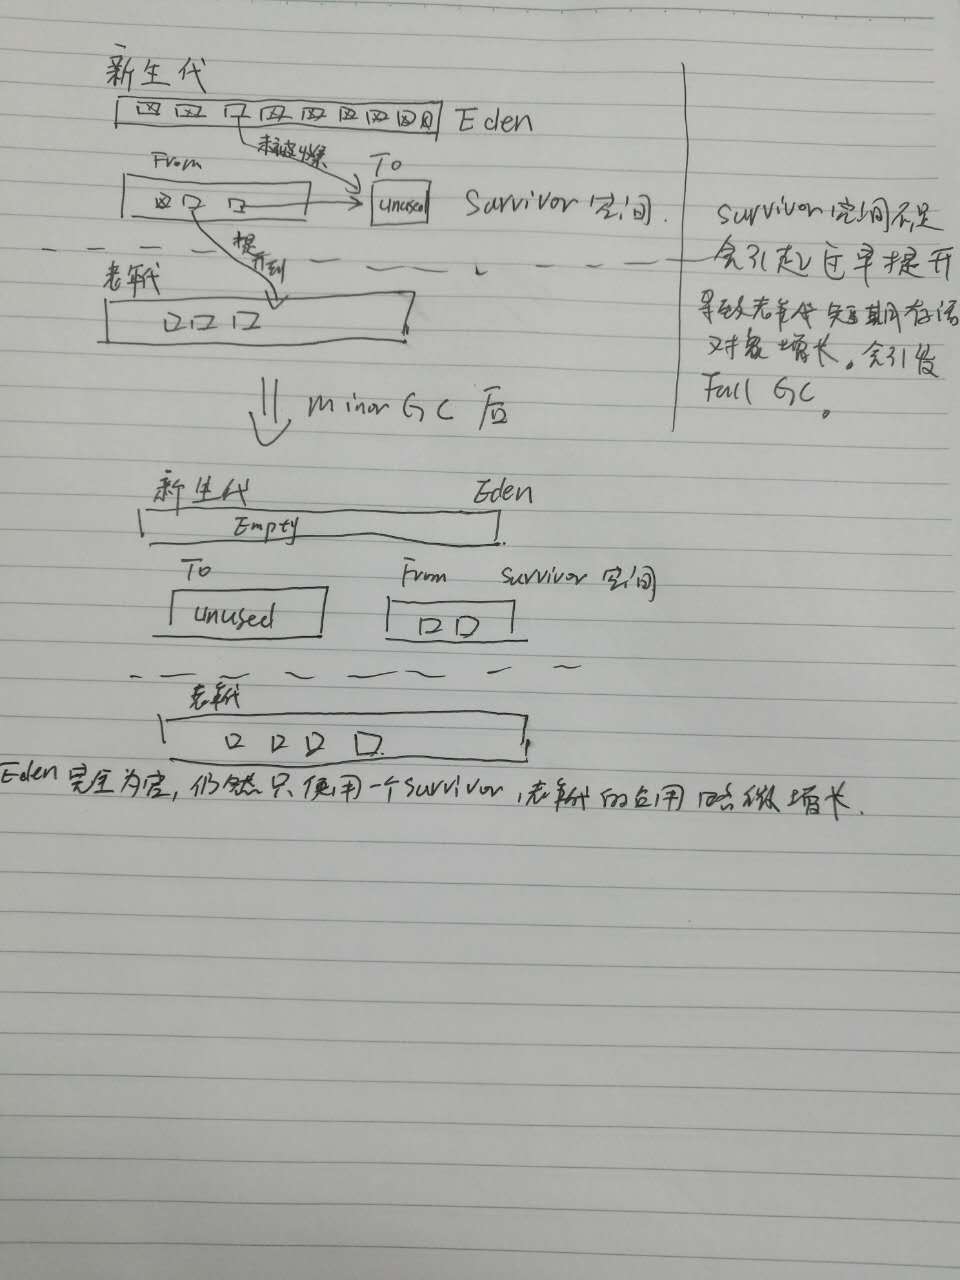 新生代
Eden
未被收集
From
To
unused
Survivor 空间.
提升到
老年代
survivor 空间不足
会引起过早提升
导致老年代短期存活
对象增长。会引发
Full GC。
minor GC 后
新生代
Eden
Empty
To
From
survivor 空间
unused
老年代
Eden 完全为空, 仍然只使用一个survivor, 老年代的占用略微增长.